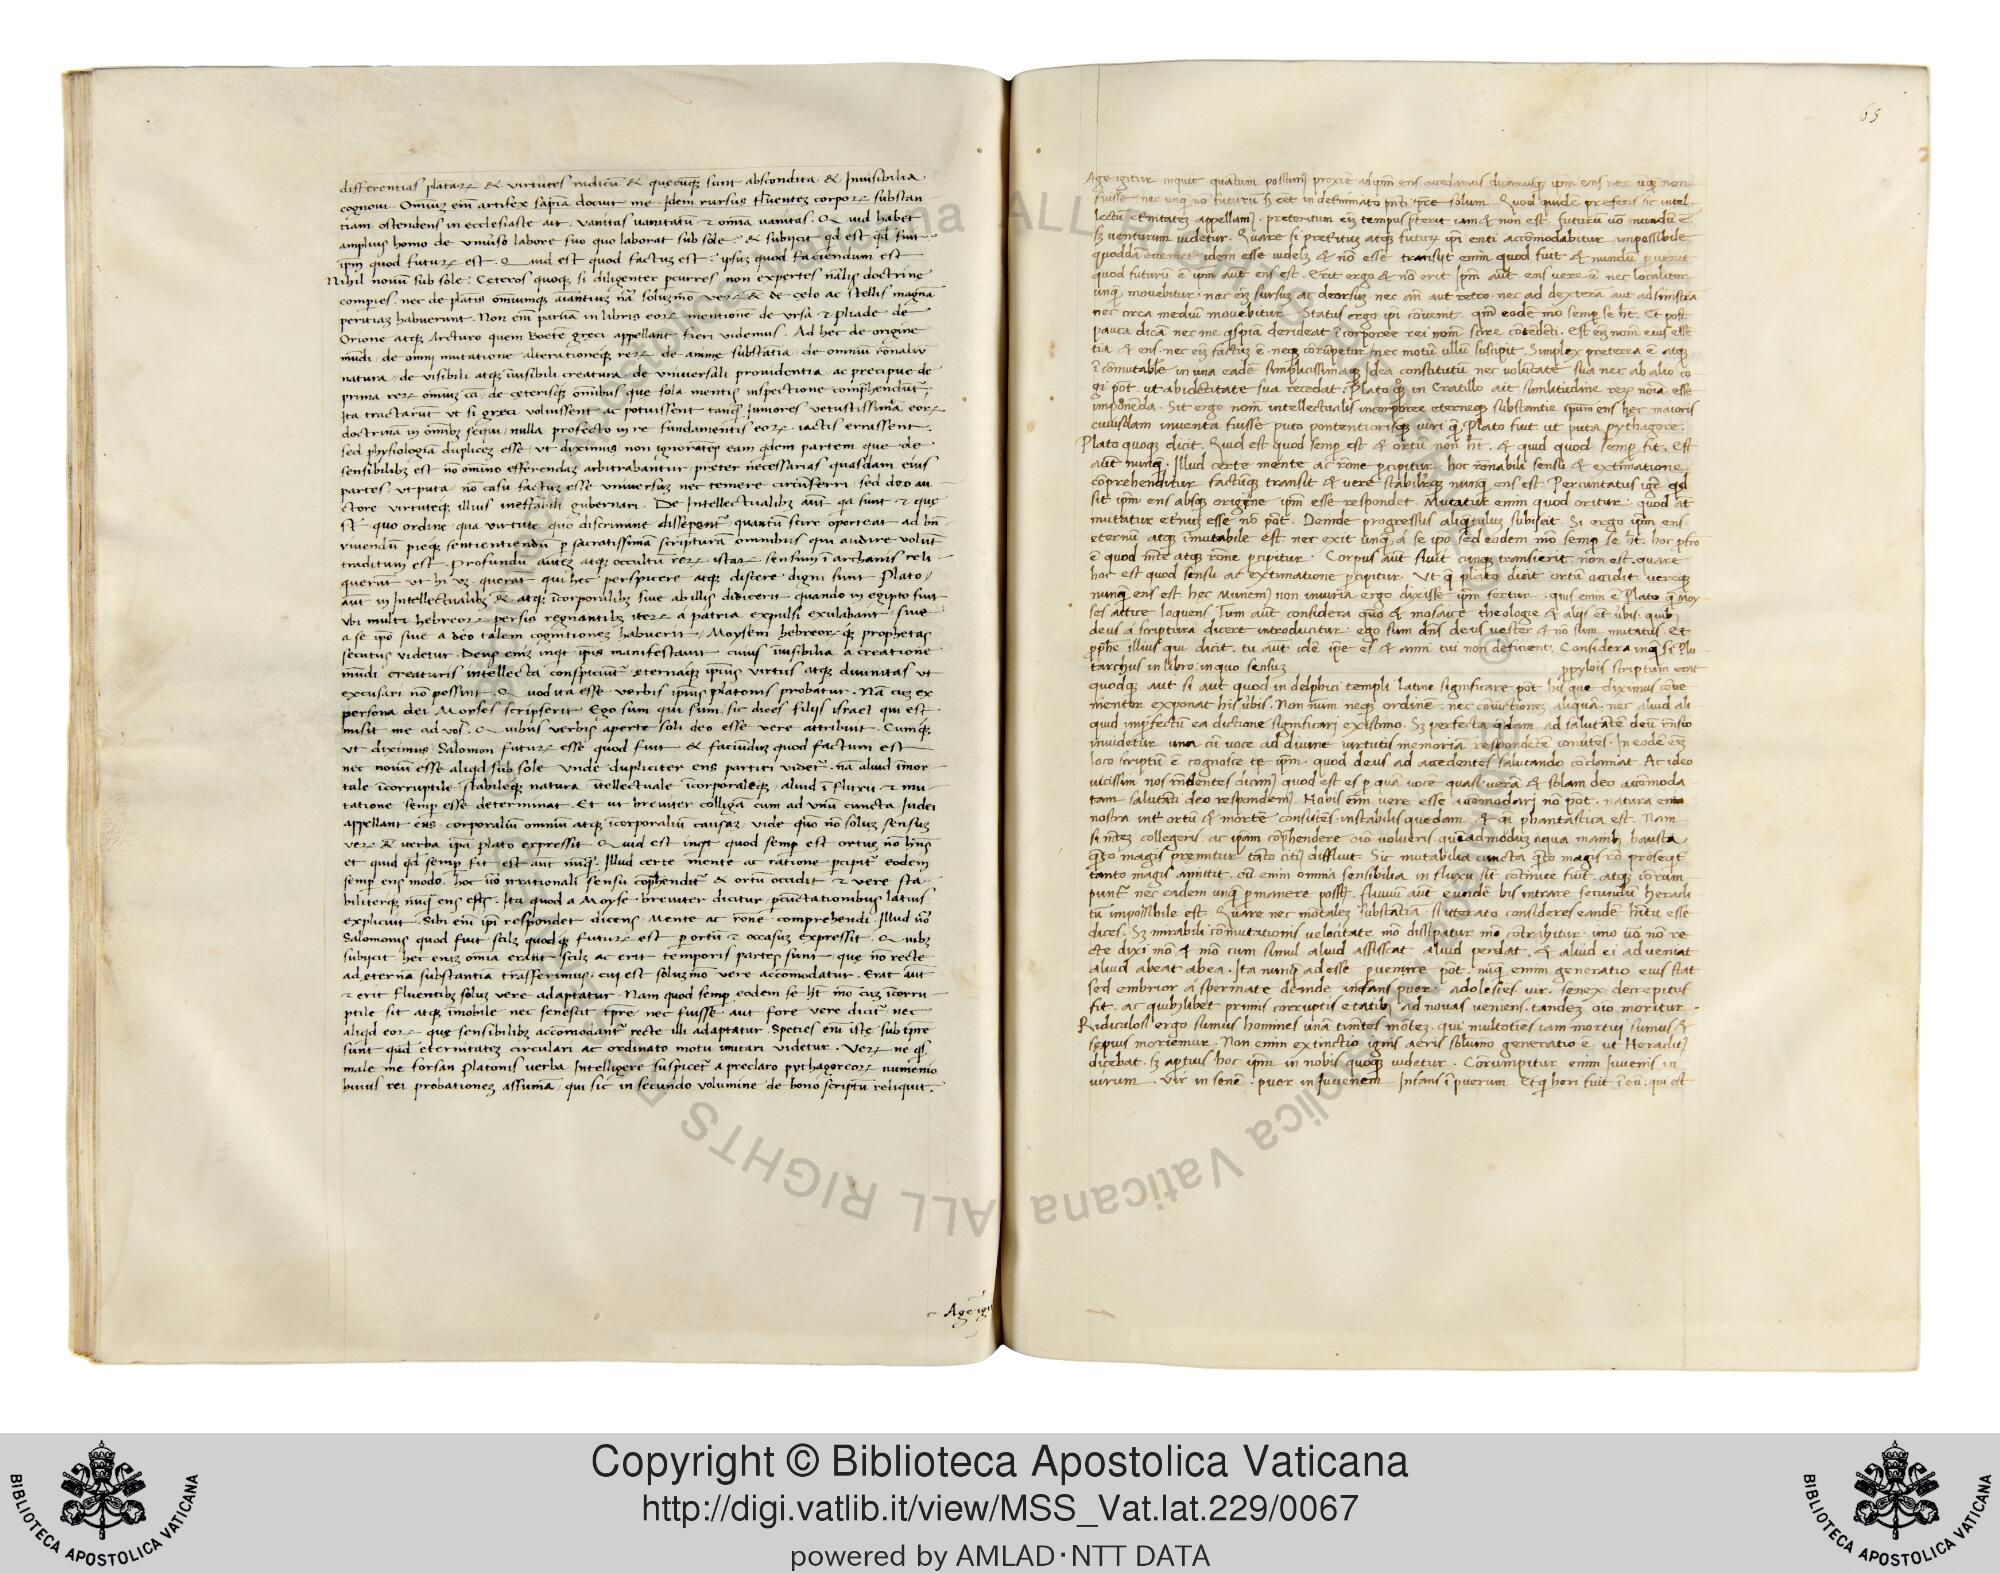 differentias platarꝝ & virtutes radicū & quęcūqꝫ sunt abscondita & Inuisibilia
cognoui. Omniuꝫ em̄ artifex sapīa docuit me. Idem rursus fluentez corporꝝ substan-
tiam ostendens in ecclesiaste ait. Vanitas vanitatū & omīa vanitas. Quid habet
amplius homo de vniuso labore suo quo laborat sub sole? & subijcit qd est qd fuit
ipm quod futurꝝ est. Quid est quod factuꝫ est? ipsuꝫ quod faciendum est
Nihil nouū sub sole. Ceteros quoqꝫ si diligenter pcurres non expertes nālis doctrine
compies. nec de platis omniumqꝫ
peritiaꝫ habuerunt. Non em̄ paruā in libris eorꝝ mentionē de vrsa & pliade de
Orione atqꝫ Arcturo quem Boetē greci appellant fieri videmus. Ad hec de origine
mūdi, de omni mutatione alterationeqꝫ rerꝝ de anime substātia, de omniū rōnaliū
natura, de visibili atqꝫ īuisibili creatura, de vniuersali prouidentia, ac precipue de
prima rerꝝ omniuꝫ cā, de ceterisqꝫ omnibus que sola mentis inspectione comphendūt᷑,
Ita tractarūt vt si greci voluissent ac potuissent tanqꝫ Iuniores vetustissimā eorꝝ
doctrinā in omībꝫ sequi, nulla profecto in re fundamentis eorꝝ iactis errassent.
sed physiologiā duplicez esse, vt diximus non ignorātes eam qdem partem que de
sensibilibꝫ est nō omīno efferendaꝫ arbitrabantur, preter necessarias quasdam eius
partes, vt puta, nō casu factuꝫ esse vniuersuꝫ nec temere circūferri, sed deo au-
ctore virtuteqꝫ illius ineffabili gubernari. De Intellectualibꝫ aūt qa sunt & que
st̄ quo ordine, qua virtute quo discrimine quantū scire oporteat ad bn̄
viuendū pieqꝫ sentientiendū p sacratissimā scripturam omnibus qui audire volūt
traditum est. Profundū atqꝫ occultū rerꝝ istarꝝ sensum ī archanis reli-
querūt vt hi qui hec perspicere atqꝫ discere digni sunt. Plato
aūt in Intellectualibꝫ & atqꝫ īcorporalibꝫ siue ab illis didicerit quando in egipto fuit
vbi multi hebreorꝝ persis regnantibꝫ iterꝝ a patria expulsi exulabant, siue
a se ipo siue a deo talem cognitionez habuerit, Moysem hebreorꝝqꝫ prophetas
secutus videtur. Deus eniꝫ inqt ipis manifestauit cuius īuisibilia a creatione
mūdi creaturis intellecta conspiciūt᷑ eternaqꝫ ipius virtus atqꝫ diuinitas vt
excusari nō possint. Quod ita esse verbis ipius platonis probatur. Nā cuꝫ ex
persona dei Moyses scripserit Ego sum qui sum, sic dices filijs israel qui est
misit me ad vos. Quibus verbis aperte soli deo esse vere attribuit. Cumqꝫ
vt diximus Salomon futurꝝ esse quod fuit & faciēduꝫ quod factum est
nec nouū esse aliqd sub sole vnde dupliciter ens partiri videt᷑. nā aliud īmor-
tale īcorruptile stabileqꝫ natura ītellectuale īcorporaleqꝫ, aliud ī fluxu & mu-
tatione semp esse determinat. Et ut breuiter colligā cum ad vnū cuncta Iudei
appellant ens corporaliū omniū atqꝫ īcorporaliū causaꝫ, vide quō nō soluꝫ sensuꝫ
verꝝ & verba ipā plato expressit. Quid est inqt quod semp est ortuꝫ nō hn̄s
et quid qd semp fit est aūt nūqꝫ. Illud certe mente ac ratione pcipit᷑ eodem
semp ens modo, hoc uō irrationali sensu cōphendit᷑ & ortū occidit & vere sta-
biliterqꝫ nūqꝫ ens est. Ita quod a Moyse breuiter dicitur pcūctationibus latius
explicuit. Sibi em̄ ipi respondet dicens. Mente ac rōne comprehendi. Illud uō
Salomonis quod fuit scilꝫ quodqꝫ futurꝝ est p ortū & occasuꝫ expressit. Quibꝫ
subijcit hec eniꝫ omīa erant scilꝫ ac erit temporis partes sunt, que nō recte
ad eterna substantia trasferimus, cui est soluꝫmō vere accomodatur. Erat aūt
& erit fluentibꝫ soluꝫ vere adaptatur. Nam quod semp eodem se hꝫ mō cuꝫ īcorru-
ptile sit atqꝫ īmobile nec senescit tp̄re nec fuisse aut fore vere dicit᷑ nec
aliqd eorꝝ que sensibilibꝫ accomodant᷑ recte illi adaptatur. Species em̄ iste sub tp̄re
sunt quod eternitatez circulari ac ordinato motu imitari videtur. Verꝝ ne qs
male me forsan platonis verba Intelligere suspicet᷑ a preclaro pythagoreorꝝ numenio
huius rei probationez assumā, qui sic in secundo volumine de bono scriptū reliquit.
Age igit᷑
65
Age igitur inquit quātum possumꝰ proxie ad ipm ens accedamus dicamusqꝫ ipm ens nec vqꝫ non
fuisse nec unqꝫ nō futurū sꝫ eēt in determinato pnti tpre solum. Quod quidē presens sic intel-
lectū eternitateꝫ appellamꝰ. preteritum eiꝫ tempus pterit iam & non est. futurū uō nundū ē
sꝫ venturum uidetur. Quare si preteituꝫ atqꝫ futurꝝ ipi enti accōmodabitur impossibile
quoddā eueniet idem esse uidelꝫ & nō esse transijt enim quod fuit & nundū puenit
quod futurū ē ipm aūt ens est. Erit ergo & nō erit. Ipm aūt ens vere ē nec localiter
unqꝫ mouebitur. nec eiꝫ sursuꝫ ac deorsuꝫ. nec an̄ aut retro. nec ad dexterā aut ad sinistrā
nec circa mediū mouebitur. Status ergo ipi cōuenit. qm̄ eodē mō semp se hꝫ. Et post
pauca dicā nec me qspiā derideat īcorporee rei nomē scire cōtēdēti. Est eiꝫ nomē eius essē
tia & ens. nec eiꝫ factuꝫ ē. neqꝫ corrūpetur, nec motū ullū suscipit. Simplex preterea ē atqꝫ
īcōmutabile in una eadē simplicissimaqꝫ idea constitutū nec volūtate sua nec ab alio co-
gi pōt. ut ab idētitate sua recedat. Plato qꝫ in Cratillo ait similitudine rerꝝ noīa esse
imponēda. Sit ergo nomē intellectualis incorporee eterneqꝫ substantie ipsum ens hec maioris
cuiusdam inuenta fuisse puto pontentiorisqꝫ uiri qꝫ Plato fuit ut puta pythagore.
Plato quoqꝫ dicit. Quid est quod semp est & ortū non hꝫ. & quid quod semp fit. Est
aūt nunqꝫ. Illud certe mente ac rōne pcipitur, hoc rōnabili sensu & extimatione
cōprehenditur factūqꝫ transit & vere stabiliterqꝫ nunqꝫ ens est. Percuntatus igr̄ qd
sit ipm ens absqꝫ origine ipm esse respondet. Mutatur enim quod oritur. quod aūt
mutatur eternuꝫ esse nō pōt. Deinde progressus aliqtuluꝫ subijcit. Si ergo ipm ens
eternū atqꝫ īmutabile est. nec exit unqꝫ a se ipo sed eodem mō semp se hꝫ. hoc pfecto
ē quod mēte atqꝫ rōne pcipitur. Corpus aūt fluit cunqꝫ transierit non est. quare
hoc est quod sensu ac extimatione pcipitur. Vt qꝫ plato dicit ortū occidit uereqꝫ
nunqꝫ ens est hec Numeniꝰ non iniuria ergo dixisse ipm fertur. quis enim ē Plato qꝫ Moy-
ses attice loquens. Tum aūt considera quō & mosaice theologie & alijs et ubis. quibꝫ
deus a scriptura dicere introducitur. ego sum dn̄s deus uester & nō sum mutatus. Et
pphe illius qui dicit. tu aūt idē ipe es & anni tui non deficient. Considera inqꝫ si Plu-
tarchus in libro in quo sensuꝫ ppylois scriptum erat
quodqꝫ aut si aut quod in delphici templi latine significare pōt his que diximus cōue-
nienter exponat his ubis. Non nūm neqꝫ ordinē nec coniūctionez aliquā. nec aliud ali-
quid imperfectū ea dictione significari existimo. Sꝫ perfecta qdam ad salutātē deū
inuidetur una cū voce ad diuine uirtutis memoriā respondetē comites. In eodē eiꝫ
loco scriptū ē cognosce te ipm quod deus ad accedentes salutando cōclamat. Ac ideo
uicissim nos rn̄dentes dicimꝰ quod est es p quā vocē quasi verā & solam deo accōmoda-
tam salutāti deo respondemꝰ. Nobis em̄ vere esse accōmodari nō pōt. natura eni
nostra int̄ ortū & mortē consistēs instabilis quedam & qi phantastica est. Nam
si mētez collegeris ac ipam cōphendere oīo volueris. quēadmoduꝫ aqua manibꝫ hausta
qto magis premitur tāto citiꝰ diffluit. Sic mutabilia cuncta qto magis rō proseqt᷑
tanto magis amittit. cū enim omnia sensibilia in fluxu sīt cōtinue fiūt. atqꝫ corum-
punt᷑ nec eadem unqꝫ pmanere possūt. fluuiū aūt eundē bis intrare secundū Heracli-
tū impossibile est. Quare nec mōtalez substantiā si iterato consideres eandē hūtu esse
dices. Sꝫ mirabili cōmutationis uelocitate mō dissipatur mō cōtrahitur. imo uō nō re-
cte dixi mō & mō cum simul aliud assiscat aliud perdat. & aliud ei adueniat
aliud abeat abea. Ita nunqꝫ ad esse puenire pōt. nūqꝫ enim generatio eius stat
sed embrior a spermate deinde infans puer adolesces uir. senex decrepitus
fit. ac quibꝫlibet primis corruptis etatibꝫ ad nouas veniens. tandez oīo moritur.
Ridiculosi ergo sumus homines unā timētes mōtez. qui multoties iam mortui sumus &
sepius moriemur. Non enim extinctio ignis aeris soluꝫmō generatio ē ut Heraclitꝰ
dicebat. sꝫ aptius hoc ipm in nobis quoqꝫ uidetur. Corūmpitur enim Iuuenis in
uirum. vir in senē. puer in Juuenem Infans ī puerum Et qi heri fuit ī eū. qui est
Copyright © Biblioteca Apostolica Vaticana
http://digi.vatlib.it/view/MSS_Vat.lat.229/0067
powered by AMLAD·NTT DATA
BIBLIOTECA APOSTOLICA VATICANA
BIBLIOTECA APOSTOLICA VATICANA